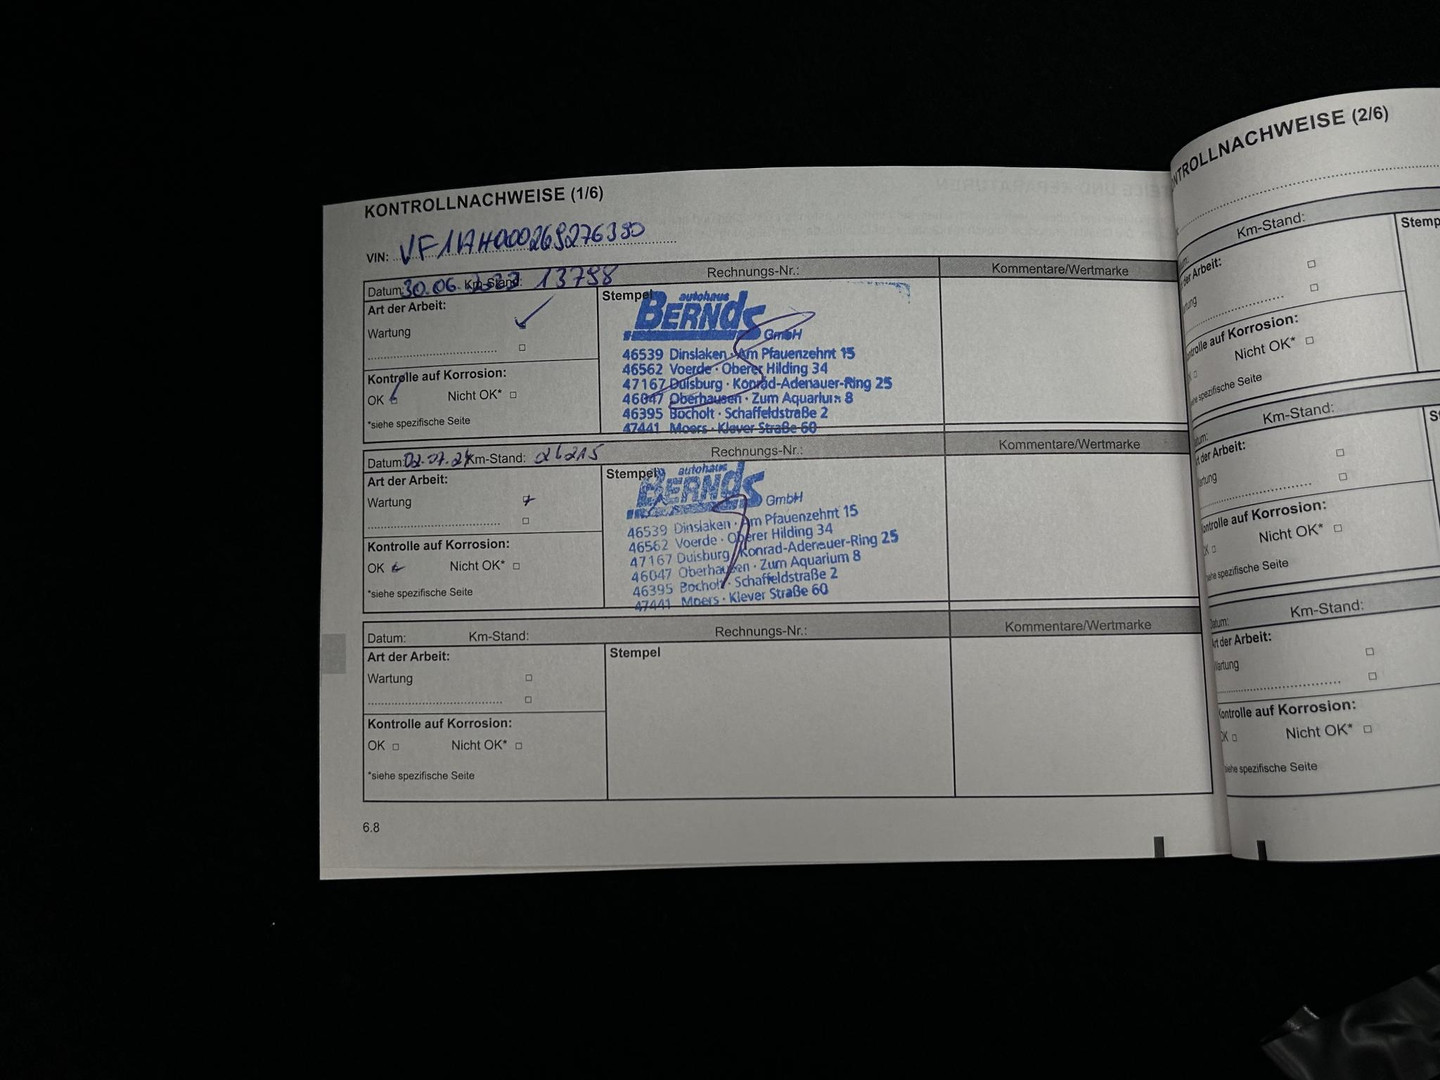 KONTROLLNACHWEISE (1/6)
VIN:
Datum: 30.06. Km-Stand: 13798 Rechnungs-Nr.: Kommentare/Wertmarke
Art der Arbeit:
Wartung
Kontrolle auf Korrosion:
OK Nicht OK*
*siehe spezifische Seite
Stempel
autohaus
BERNDS GmbH
46539 Dinslaken · Am Pfauenzehnt 15
46562 Voerde · Oberer Hilding 34
47167 Duisburg · Konrad-Adenauer-Ring 25
46047 Oberhausen · Zum Aquarium 8
46395 Bocholt · Schaffeldstraße 2
47441 Moers · Klever Straße 60
Datum: 02.07.24 Km-Stand: 26215 Rechnungs-Nr.: Kommentare/Wertmarke
Art der Arbeit:
Wartung
Kontrolle auf Korrosion:
OK Nicht OK*
*siehe spezifische Seite
Stempel
autohaus
BERNDS GmbH
46539 Dinslaken · Am Pfauenzehnt 15
46562 Voerde · Oberer Hilding 34
47167 Duisburg · Konrad-Adenauer-Ring 25
46047 Oberhausen · Zum Aquarium 8
46395 Bocholt · Schaffeldstraße 2
47441 Moers · Klever Straße 60
Datum: Km-Stand: Rechnungs-Nr.: Kommentare/Wertmarke
Art der Arbeit:
Wartung
Kontrolle auf Korrosion:
OK Nicht OK*
*siehe spezifische Seite
Stempel
6.8
NTROLLNACHWEISE (2/6)
Km-Stand:
der Arbeit:
Stemp
ntrolle auf Korrosion:
Nicht OK*
spezifische Seite
Datum: Km-Stand:
Art der Arbeit:
Wartung
Kontrolle auf Korrosion:
OK Nicht OK*
siehe spezifische Seite
Datum: Km-Stand:
Art der Arbeit:
Wartung
Kontrolle auf Korrosion:
OK Nicht OK*
siehe spezifische Seite